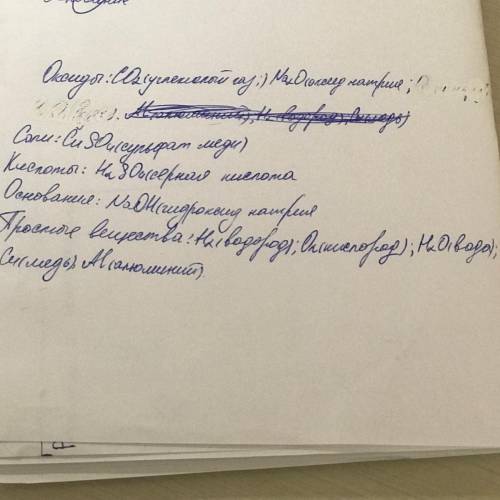 Оксиды: CO2 (углекислый газ;) Na2O (оксид натрия;
Al (алюминий), H2 (водород), Cu (медь)
Соли: CuSO4 (сульфат меди)
Кислоты: H2SO4 (серная кислота
Основание: NaOH (гидроксид натрия
Простые вещества: H2 (водород); O2 (кислород); H2O (вода);
Cu (медь) Al (алюминий)